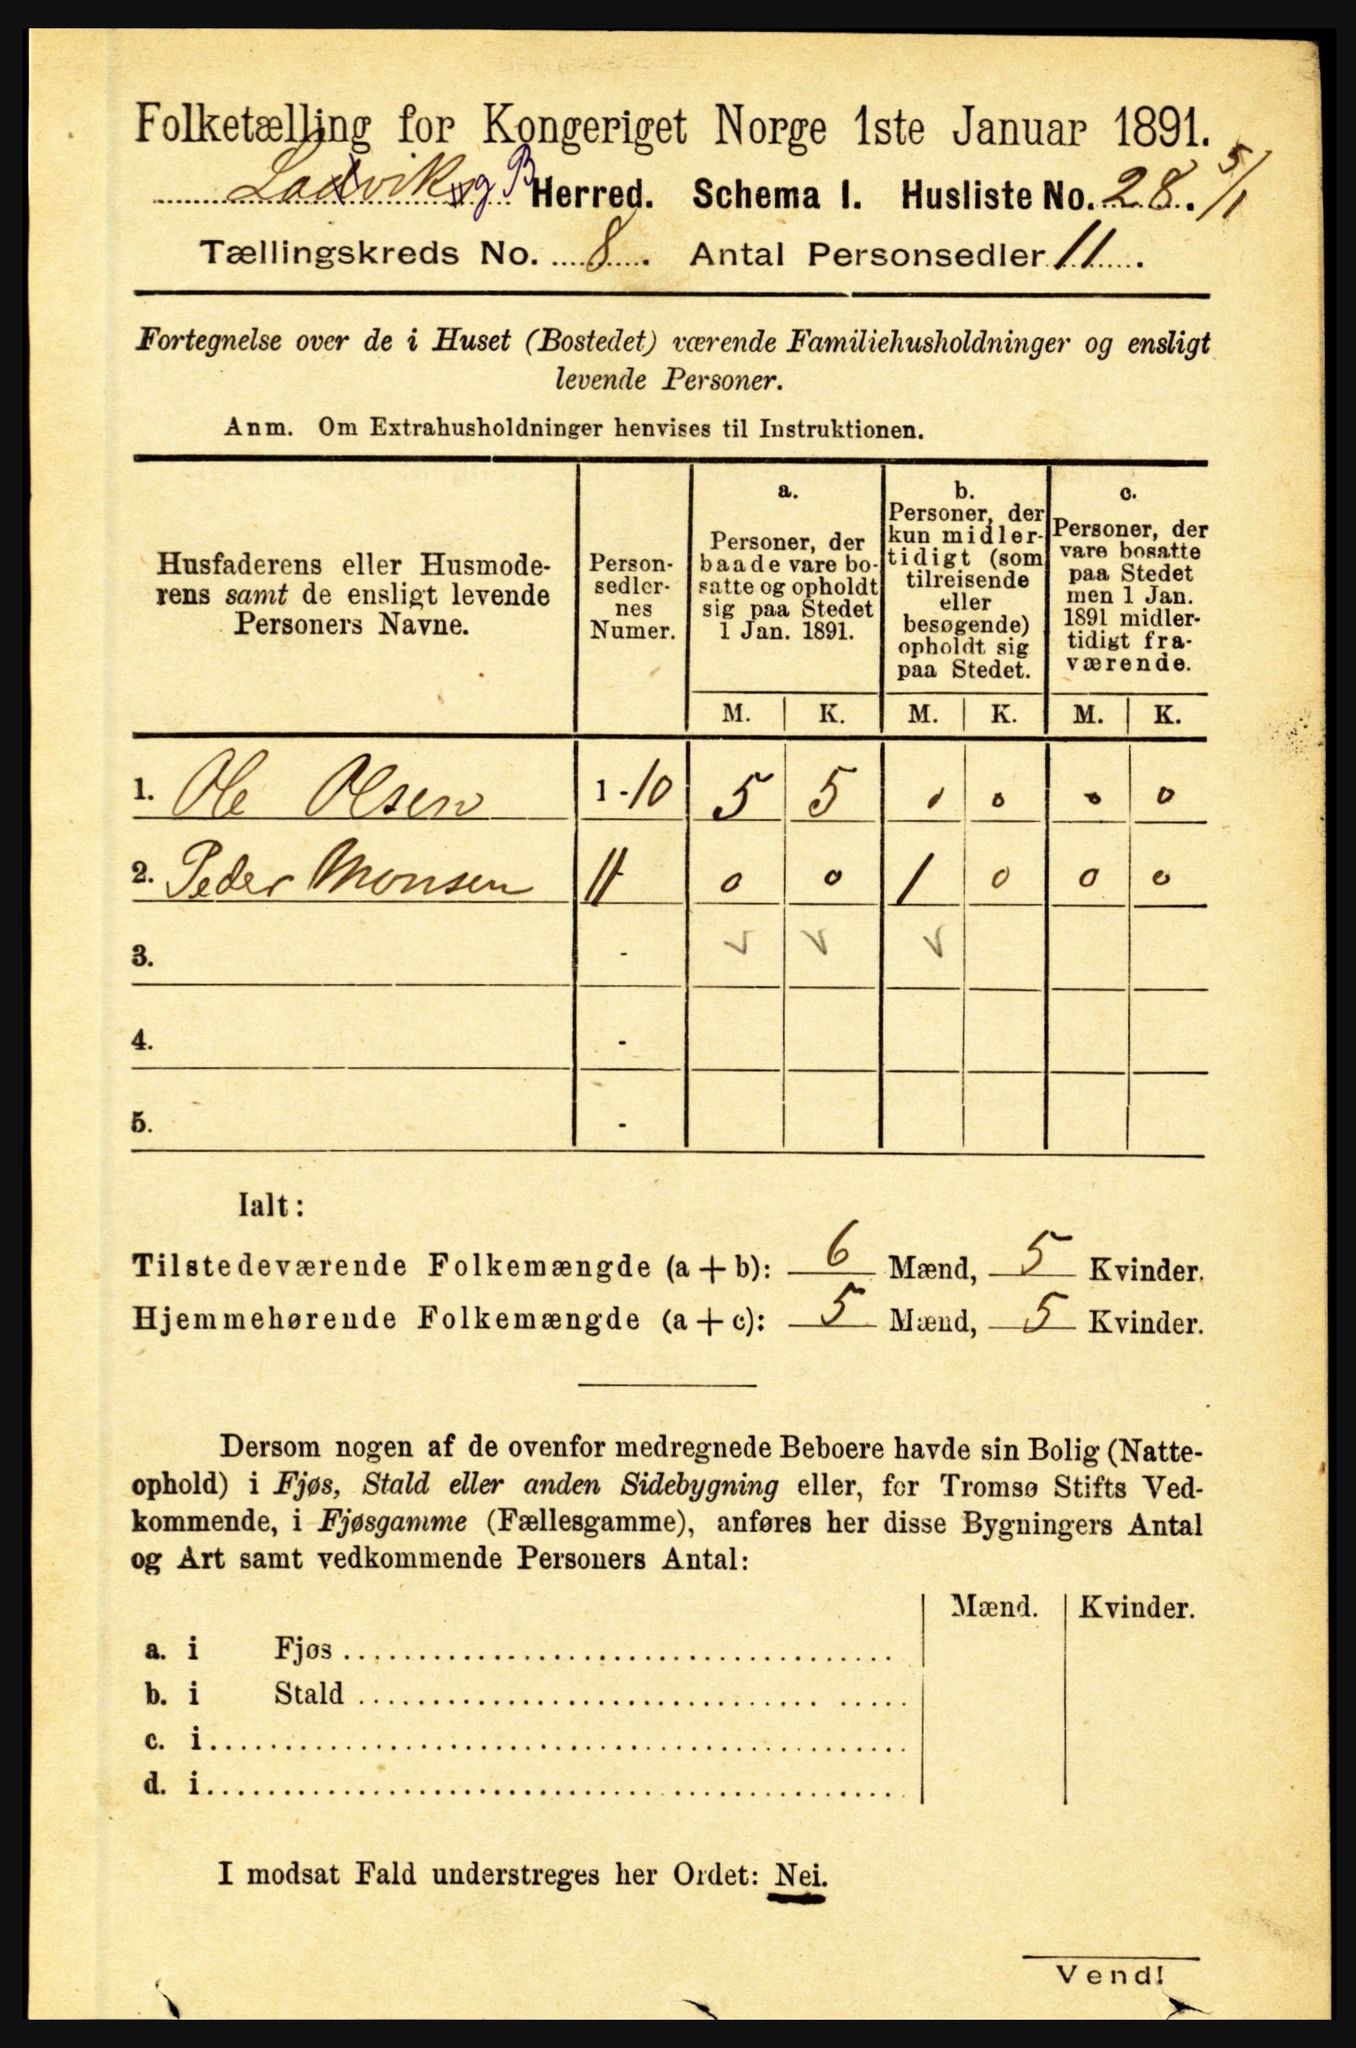 Folketælling for Kongeriget Norge 1ste Januar 1891.
Ladvik og B Herred. Schema I. Husliste No. 28. 5/1
Tællingskreds No. 8. Antal Personsedler 11.
Fortegnelse over de i Huset (Bostedet) værende Familiehusholdninger og ensligt
levende Personer.
Anm. Om Extrahusholdninger henvises til Instruktionen.
Husfaderens eller Husmode-
rens samt de ensligt levende
Personers Navne.
Person-
sedler-
nes
Numer.
a.
Personer, der
baade vare bo-
satte og opholdt
sig paa Stedet
1 Jan. 1891.
b.
Personer, der
kun midler-
tidigt (som
tilreisende
eller
besøgende)
opholdt sig
paa Stedet.
c.
Personer, der
vare bosatte
paa Stedet
men 1 Jan.
1891 midler-
tidigt fra-
værende.
M. K. M. K. M. K.
1. Ole Olsen 1 - 10 5 5 0 0 0 0
2. Peder Monsen 11 0 0 1 0 0 0
3. -
4. -
5. -
Ialt:
Tilstedeværende Folkemængde (a + b): 6 Mænd, 5 Kvinder.
Hjemmehørende Folkemængde (a + c): 5 Mænd, 5 Kvinder.
Dersom nogen af de ovenfor medregnede Beboere havde sin Bolig (Natte-
ophold) i Fjøs, Stald eller anden Sidebygning eller, for Tromsø Stifts Ved-
kommende, i Fjøsgamme (Fællesgamme), anføres her disse Bygningers Antal
og Art samt vedkommende Personers Antal:
Mænd. Kvinder.
a. i Fjøs
b. i Stald
c. i
d. i
I modsat Fald understreges her Ordet: Nei.
Vend!